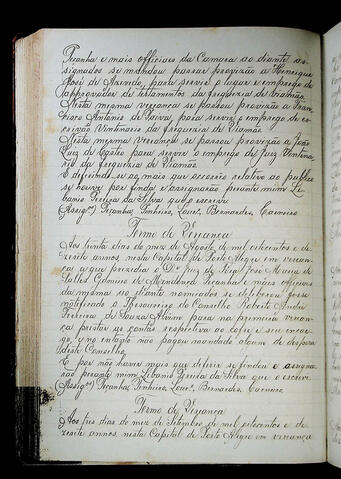 Peçanha e mais officiaes da Camara ao diante as-
signados se mandou passar provizão a Henrique
José de Azevedo, para servir o lugar e emprego de
approvador de testamentos da freguezia de Viamão
Nesta mesma vereança se passou provizão a Fran-
cisco Antonio de Paiva para servir o emprego de es-
crivão Vintenario da freguezia de Viamão
Nesta mesma vereança se passou provizão a João
Luiz de para servir o emprego de Juiz Vintena-
rio da freguezia de Viamão
E deferindo se o mais que occorrêo relativo ao publico
se houve por finda e assignarão perante mim Li-
banio Pereira da Silva que o escrevi
(Assig.os) Peçanha, Pinheiro, Bernardes, Carneiro
Termo de Vereança
Aos trinta dias do mez de Agosto de mil oitocentos e de-
zesete annos, nesta Capital de Porto Alegre em verean-
ça a que prezidio o Dr Juiz de Fóra José Maria de
Salles Gameiro de Mendonça Peçanha e mais officiaes
da mesma ao diante nomiados se deliberou fosse
notificado o Thesoureiro do Conselho, Roberto André
Ferreira de Souza Alvim para na primeira verean-
ça prestar as contas respectivas ao cofre a seu encar-
go, e no entanto não pagou mandado algum de despeza
deste Conselho
E por não haver mais que deferir se findou e assigna-
rão perante mim Libanio Pereira da Silva que o escrevi
(Assig.os) Peçanha, Pinheiro, Bernardes, Carneiro
Termo de Vereança
Aos tres dias do mez de Setembro de mil oitocentos e de-
zesete annos, nesta Capital de Porto Alegre em vereança